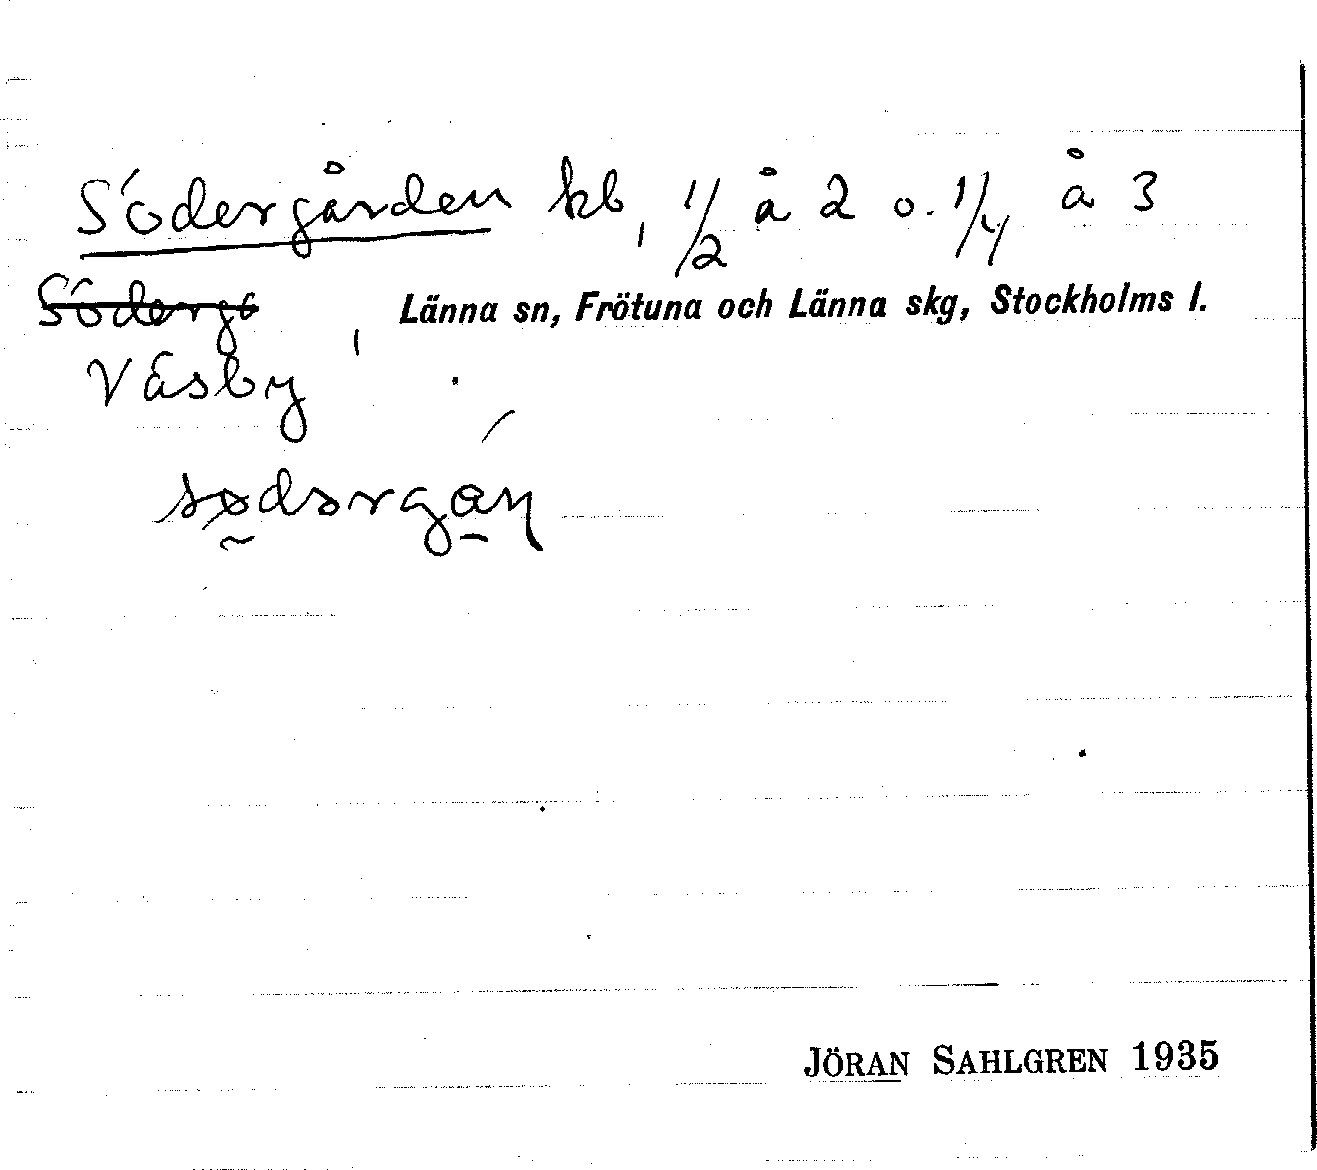 Södergården kb, 1/2 å 2 o. 1/4 å 3
Södergå
Länna sn, Frötuna och Länna skg, Stockholms l.
Väsby,
JÖRAN SAHLGREN 1935